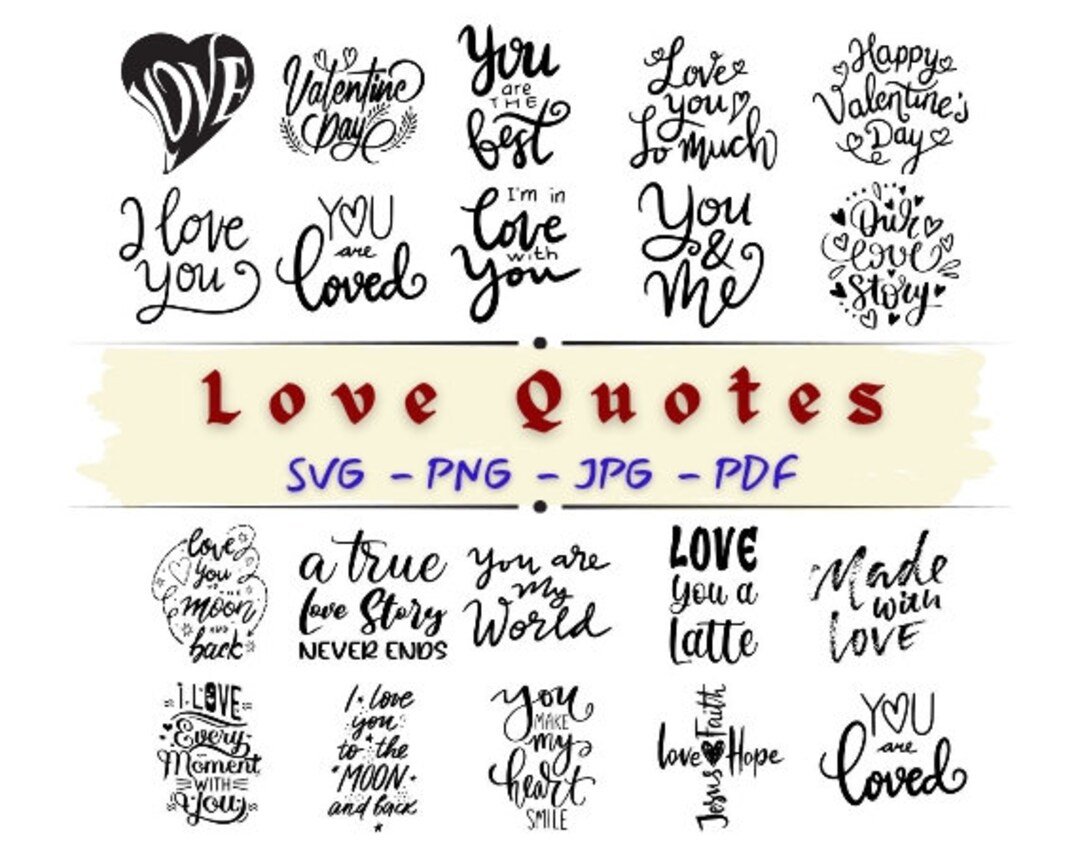 LOVE
Valentine
Day
You
are
THE
best
Love
you
So much
Happy
Valentine's
Day
I love
you
YOU
are
loved
I'm in
Love
with
You
You
&
Me
Our
Love
Story
Love Quotes
SVG - PNG - JPG - PDF
love
you
to the
moon
and
back
a true
Love Story
NEVER ENDS
You are
My
World
LOVE
you a
Latte
Made
with
LOVE
I LOVE
Every
Moment
WITH
You
I love
you
to the
MOON
and back
you
MAKE
my
heart
SMILE
Faith
Love Hope
Jesus
YOU
are
loved